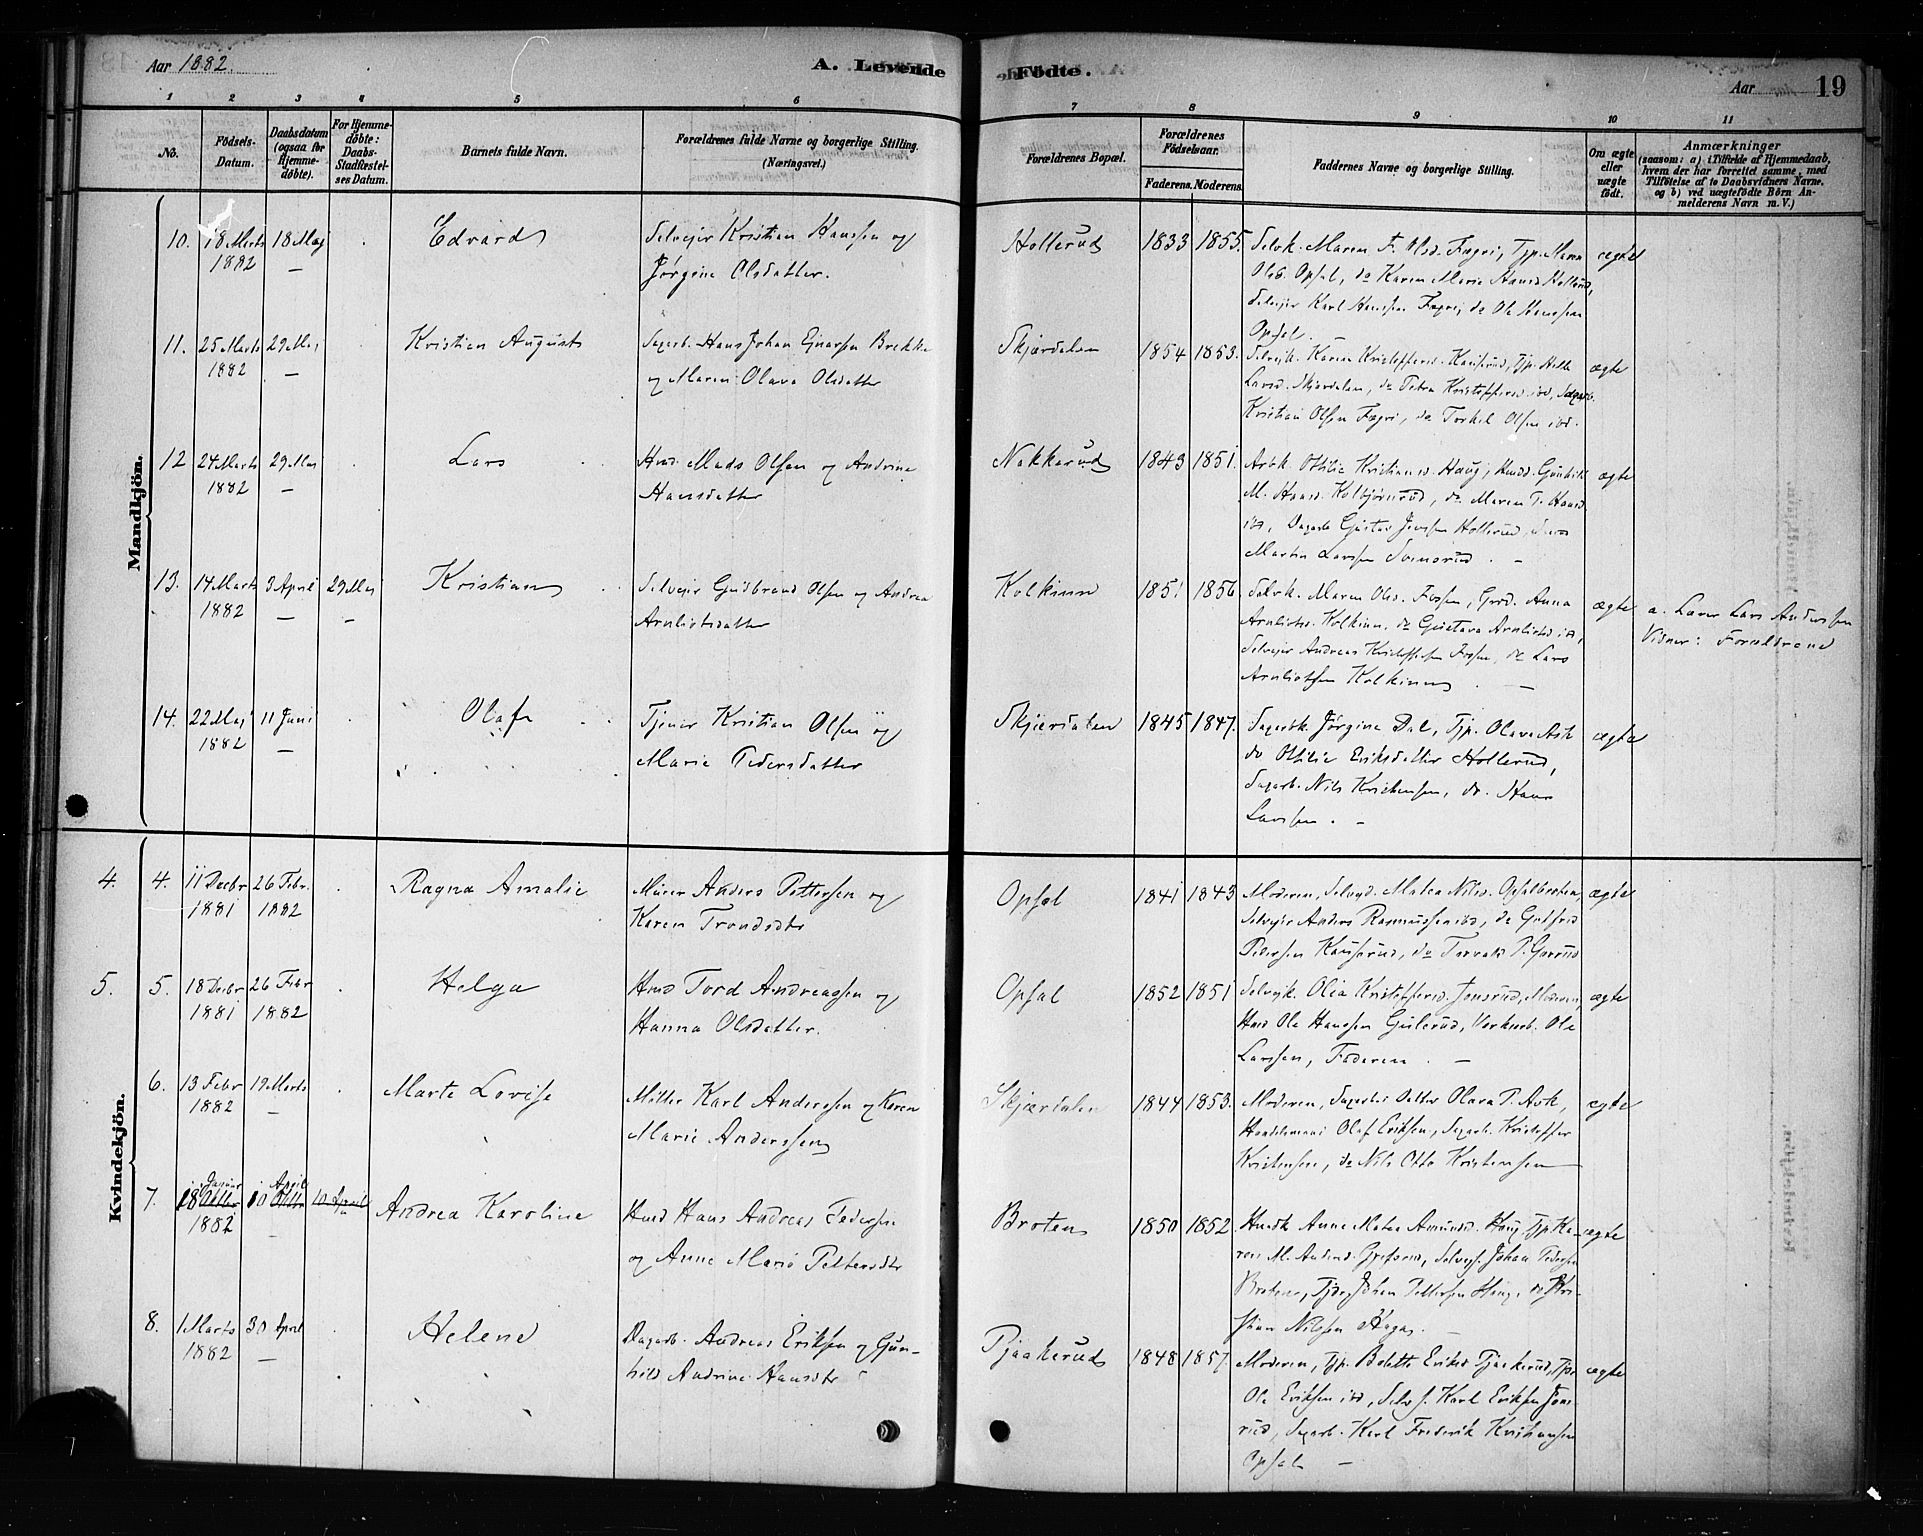 Aar 1882.
A. Levende
Fødte.
Aar
19
1 2 3 4 5 6 7 8 9 10 11
No.
Födsels-Datum.
Daabsdatum (ogsaa for Hjemmedøbte).
For Hjemmedøbte: Daabs-Stadfæstelses Datum.
Barnets fulde Navn.
Forældrenes fulde Navne og borgerlige Stilling. (Næringsvei.)
Forældrenes Bopæl.
Forældrenes Födselsaar.
Faderens. Moderens.
Faddernes Navne og borgerlige Stilling.
Om ægte eller uægte født.
Anmærkninger (saasom: a) i Tilfælde af Hjemmedaab, hvem der har forrettet samme, med Tilføielse af to Daabsvidners Navne, og b) ved uægtefødte Børn Anmelderens Navn m. V.)
Mandkjön.
10. 18 Marts 1882 18 Maj — Edvard Selvejer Kristian Hanssen og Jørgine Olsdatter. Hollerud 1833 1855. Selvk. Maren F. Olsd. Fægri, Tjp. Maren Olsd. Opsal, do Karen Marie Hansd. Hollerud, Selvejer Karl Hanssen Fægri, do Ole Hanssen Opsal. — ægte
11. 25 Marts 1882 29 Maj — Kristian August Sagarb. Hans Johan Brekke og Maren Olava Olsdatter Skjærdalen 1854 1853. Selvejk. Karen Kristoffersd. Tjp. Larsd. Skjærdalen, do Petra Kristoffersd. ibd, Sagarb. Kristian Olsen Fægri, do Torkel Olsen ibd. ægte
12 24 Marts 1882 29 Maj — Lars Hmd. Mads Olsen og Andrine Hansdatter Nakkerud 1843 1851. Arbk. Othilie Kristiansd. Haug, Hmdd. M. Hansd. Kolbjørnrud, do. Maren T. Hansd. ibd, Dagarb Gustav Jenssen Hollerud, Martin Larssen — ægte
13. 14 Marts 1882 3 April — 29 Maj — Kristian Selvejer Gudbrand Olsen og Andrea Arnliotsdatter Kolkinn 1851 1856. Selvk. Maren Olsd. Fossen, Grd. Anna Arnliotsd. Kolkinn, do Gustava Arnliotsd ibd, Selvejer Andreas Kristoffersen Fossen, do Lars Arnliotsen Kolkinn. — ægte a. Lærer Lars Anderssen Vidner: Forældrene
14. 22 Maj 1882 11 Juni — Olaf Tjener Kristian Olsen og Marie Pedersdatter Skjærdalen 1845 1847. Sagarbk. Jørgine Dal, Tjp. Olava Ask do Othilie Eriksdatter Hollerud, Sagarb. Nils Kristensen, do. Hans Larssen. — ægte
Kvindekjön.
4. 4. 11 Decbr 1881 26 Febr. 1882 Ragna Amalie Murer Anders Pettersen og Karen Trondsdtr Opsal 1841 1843 Moderen, Selvejd. Matea Nilsd. Opsalbraten, Selvejer Anders Rasmussen ibd, do Gotfred Pedersen do Torvald P. ægte
5. 5. 18 Decbr 1881 26 Febr 1882 Helga Hmd Tord Andreassen og Hanna Olsdatter. Opsal 1852 1851 Selvejk. Olia Kristoffersd. Jonsrud, Moderen, Hmd Ole Hanssen Gulerud, Ole Larssen, Faderen. — ægte
6. 13 Febr 1882 19 Marts — Marte Lovise Møller Karl Anderssen og Karen Marie Anderssen Skjærdalen 1844 1853. Moderen, Datter Olava P. Ask, Handelsmand Olaf Eriksen, Sagarb. Kristoffer Kristensen, do Nils Otto Kristensen ægte
7. 18 Januar 1882 10 April — 10 April Andrea Karoline Hmd Hans Andreas Pedersen og Anne Marie Pettersdtr Broten 1850 1852 Hmdk Anne Matea Amundsd. Haug, Tjp. Karen M. Andersd. Selvejs. Johan Pedersen Broten, Johan Pettersen Haug, do Kristian Nilssen Haga. — ægte
8. 1 Marts 1882 30 April — Helene Dagarb. Andreas Eriksen og Gunhild Andrine Hansdtr Pjaakerud 1848 1857. Moderen, Tjp. Bolette Eriksd Pjaakerud, Tjp. Ole Eriksen ibd, Selvejs. Karl Eriksen Jonsrud, Sagarb. Karl Frederik Kristiansen Opsal — ægte